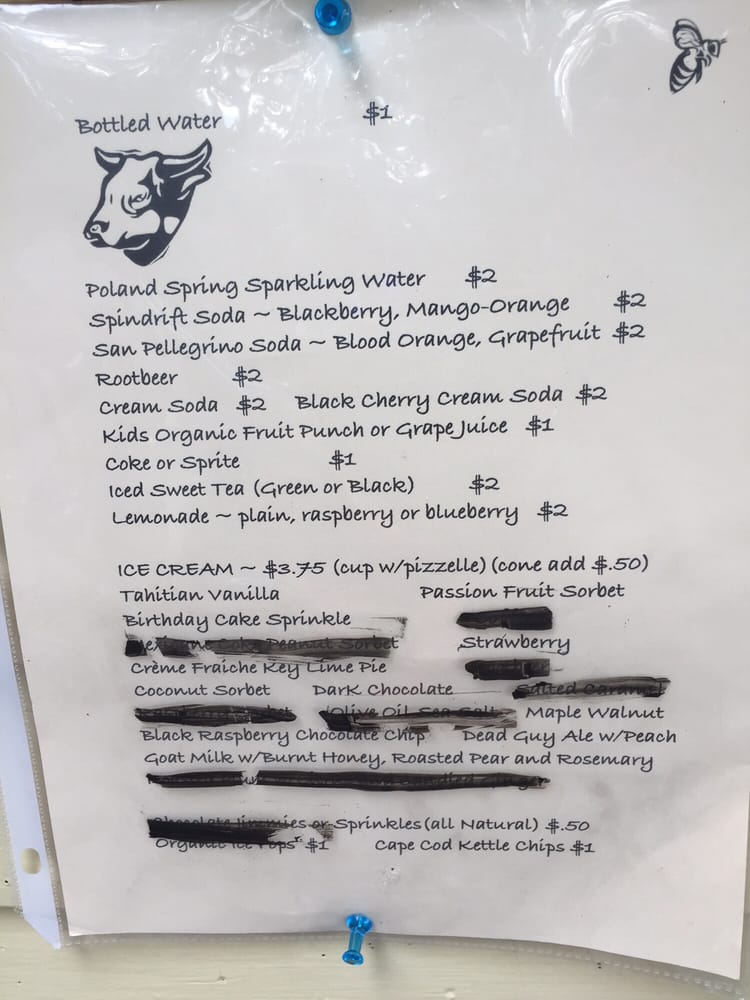 Bottled Water $1
Poland Spring Sparkling Water $2
Spindrift Soda ~ Blackberry, Mango-Orange $2
San Pellegrino Soda ~ Blood Orange, Grapefruit $2
Rootbeer $2
Cream Soda $2 Black Cherry Cream Soda $2
Kids Organic Fruit Punch or Grape Juice $1
Coke or Sprite $1
Iced Sweet Tea (Green or Black) $2
Lemonade ~ plain, raspberry or blueberry $2
ICE CREAM ~ $3.75 (cup w/pizzelle) (cone add $.50)
Tahitian Vanilla Passion Fruit Sorbet
Birthday Cake Sprinkle
Coke Peanut Sorbet Strawberry
Crème Fraiche Key Lime Pie
Coconut Sorbet Dark Chocolate Salted Caramel
Olive Oil Sea Salt Maple Walnut
Black Raspberry Chocolate Chip Dead Guy Ale w/Peach
Goat Milk w/Burnt Honey, Roasted Pear and Rosemary
Chocolate Jimmies or Sprinkles (all Natural) $.50
Organic Ice Pops $1 Cape Cod Kettle Chips $1